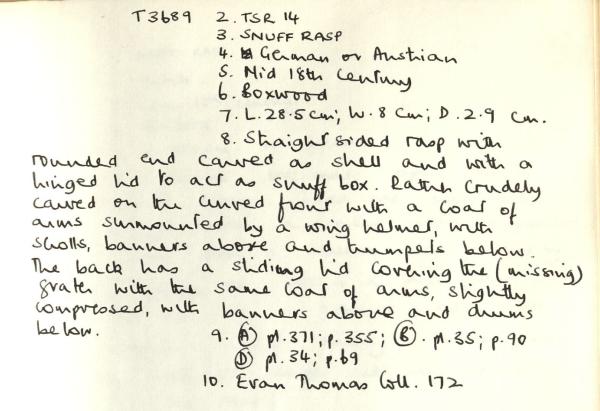 T3689 2. TSR 14
3. SNUFF RASP
4. German or Austrian
5. Mid 18th Century
6. Boxwood
7. L. 28.5 cm; W. 8 cm; D. 2.9 cm.
8. Straight sided rasp with
rounded end carved as shell and with a
hinged lid to act as snuff box. Rather crudely
carved on the curved front with a coat of
arms surmounted by a wing helmet, with
scrolls, banners above and trumpets below.
The back has a sliding lid covering the (missing)
grater with the same coat of arms, slightly
compressed, with banners above and drums
below.
9. (A) pl. 371; p. 355; (B). pl. 35; p. 90
(D) pl. 34; p. 69
10. Evan Thomas Coll. 172